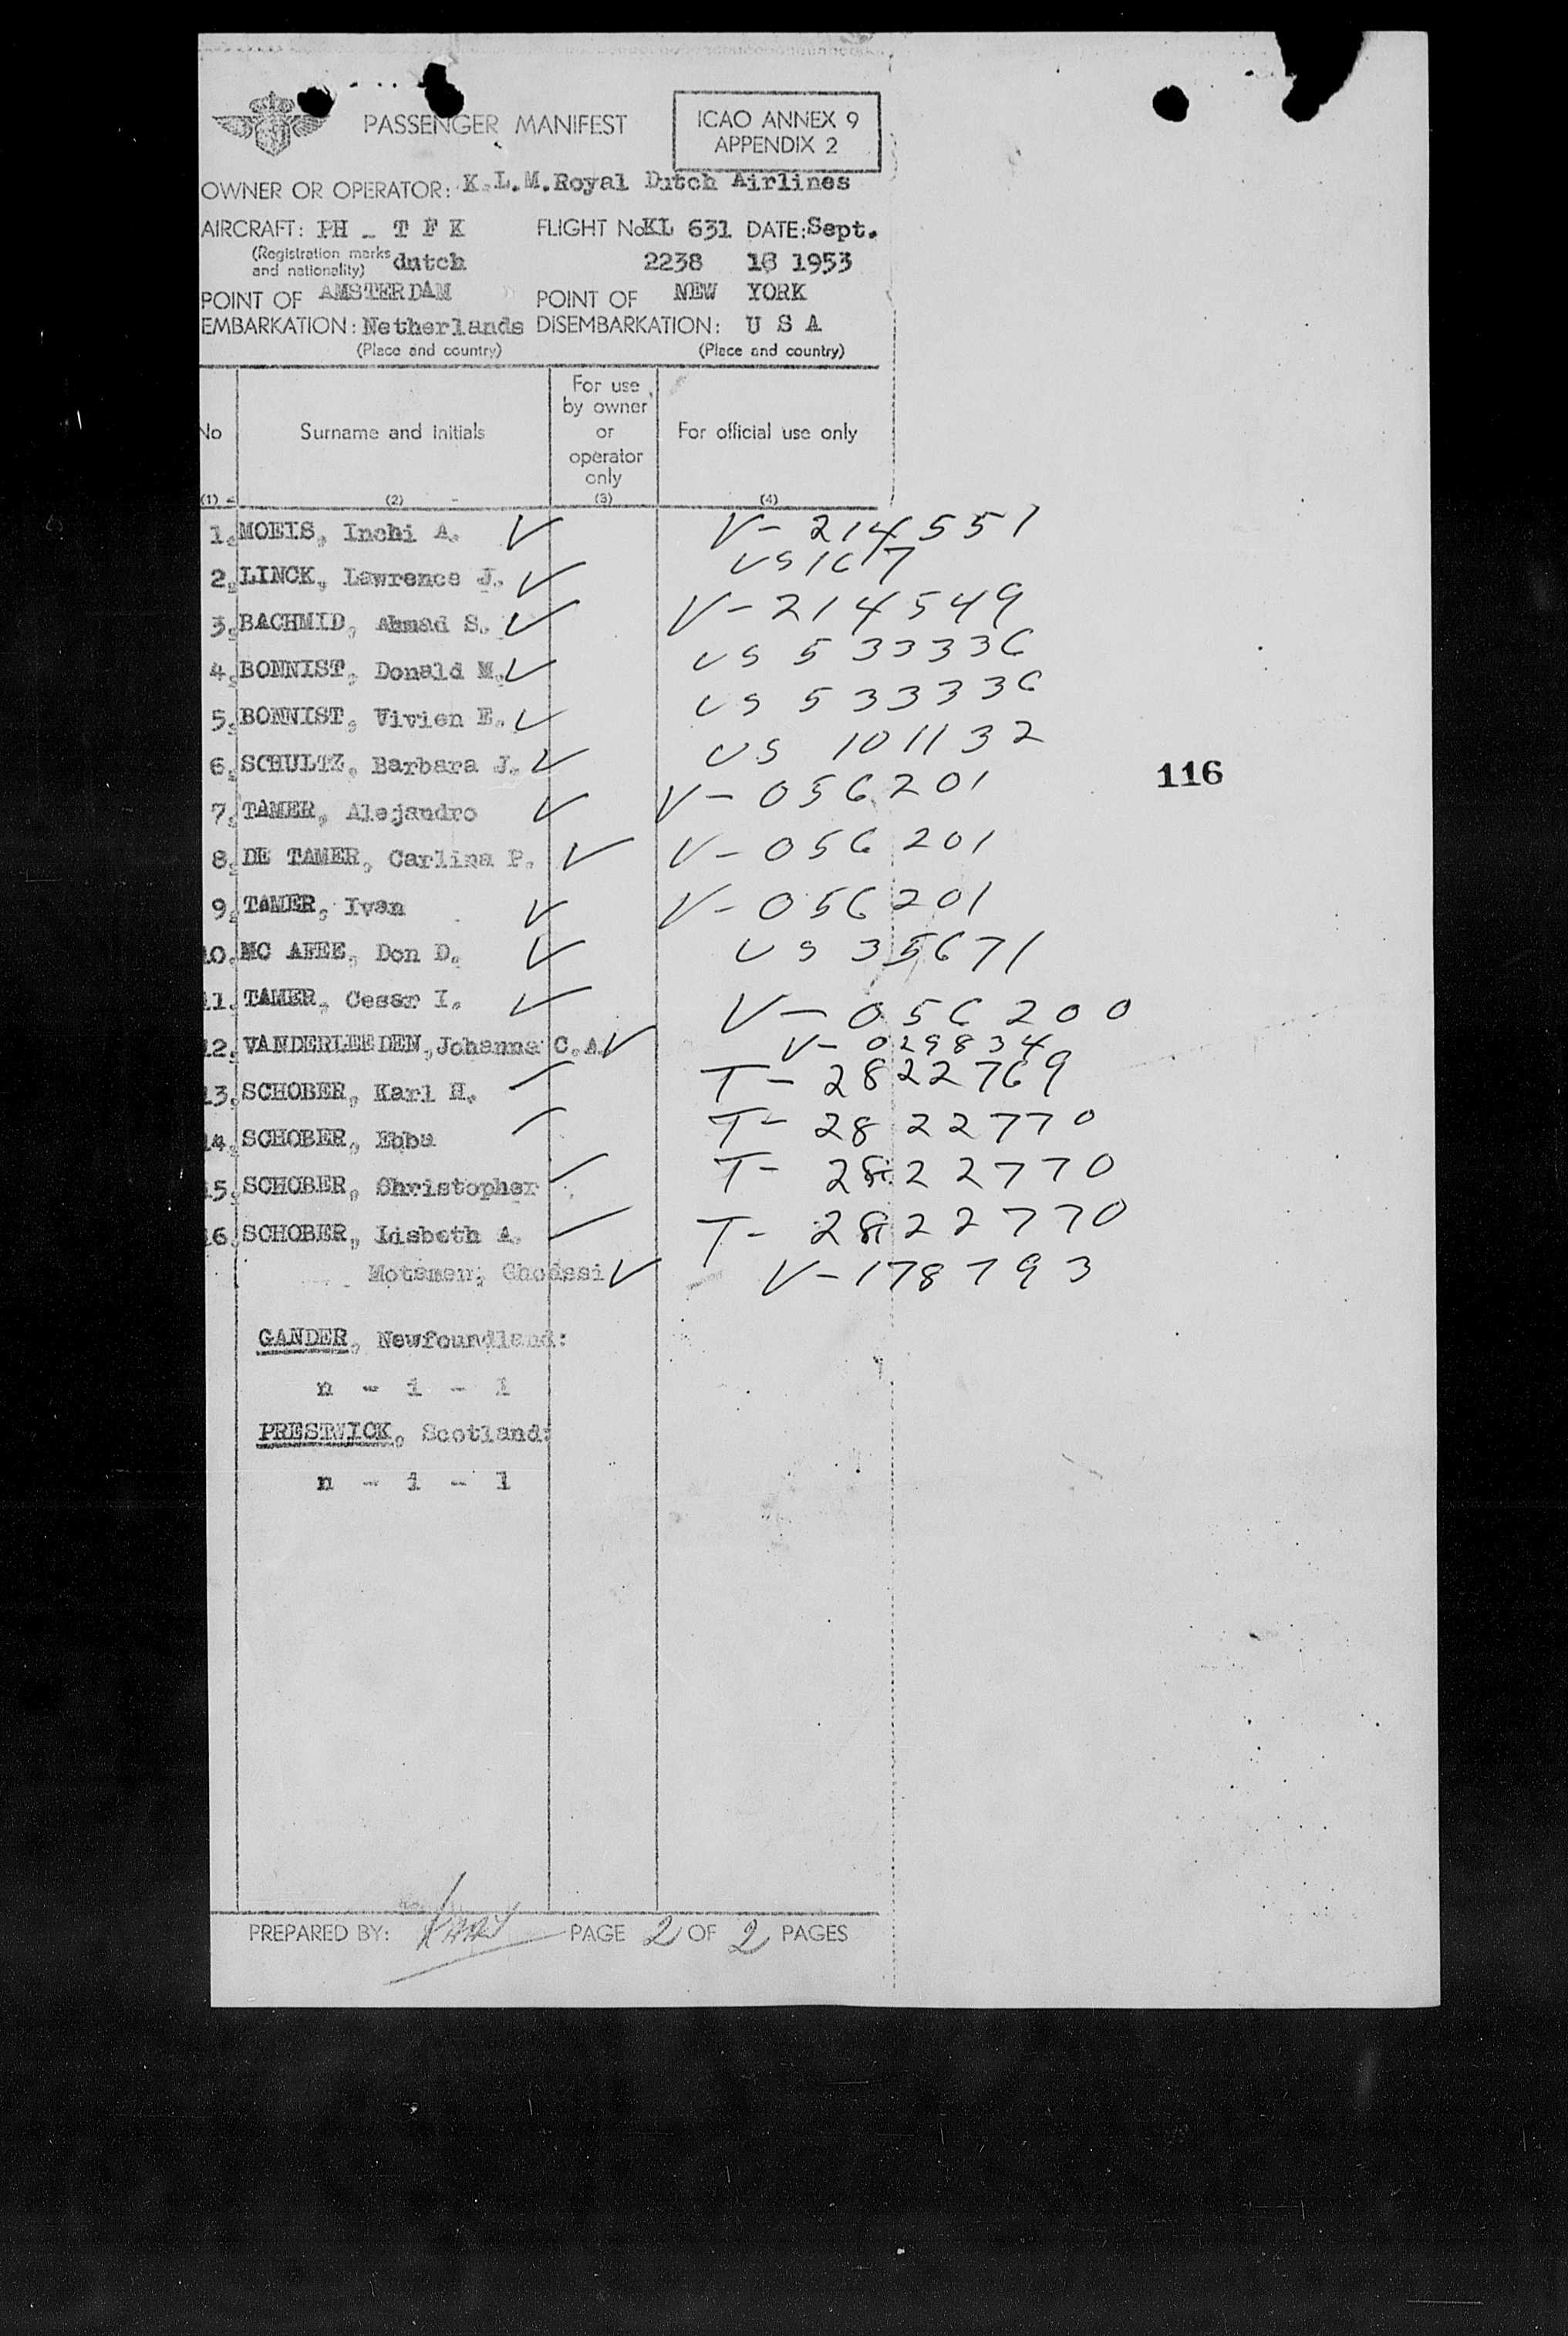 PASSENGER MANIFEST
ICAO ANNEX 9
APPENDIX 2
OWNER OR OPERATOR: K.L.M. Royal Dutch Airlines
AIRCRAFT: PH - T F K FLIGHT No KL 631 DATE: Sept.
(Registration marks and nationality) dutch 2238 18 1953
POINT OF AMSTERDAM POINT OF NEW YORK
EMBARKATION: Netherlands DISEMBARKATION: U S A
(Place and country) (Place and country)
No Surname and initials For use by owner or operator only For official use only
(1) (2) (3) (4)
1. MOEIS, Inchi A. V V- 214551
2. LINCK, Lawrence J. V US 1617
3. BACHMID, Ahmad S. V V- 214549
4. BONNIST, Donald M. V US 533336
5. BONNIST, Vivien E. V US 533336
6. SCHULTZ, Barbara J. V US 101132
116
7. TAMER, Alejandro V V- 056201
8. DE TAMER, Carlina P. V V- 056201
9. TAMER, Ivan V V- 056201
10. MC AFEE, Don D. V US 35671
11. TAMER, Cesar I. V V- 056200
12. VANDERLEEDEN, Johanna C.A. V V- 029834
13. SCHOBER, Karl H. T- 2822769
14. SCHOBER, Ebba T- 2822770
15. SCHOBER, Christopher T- 2822770
16. SCHOBER, Lisbeth A. T- 2822770
Motamen, Ghodssi V V-178793
GANDER, Newfoundland:
n - i - l
PRESTWICK, Scotland:
n - i - l
PREPARED BY: PAGE 2 OF 2 PAGES